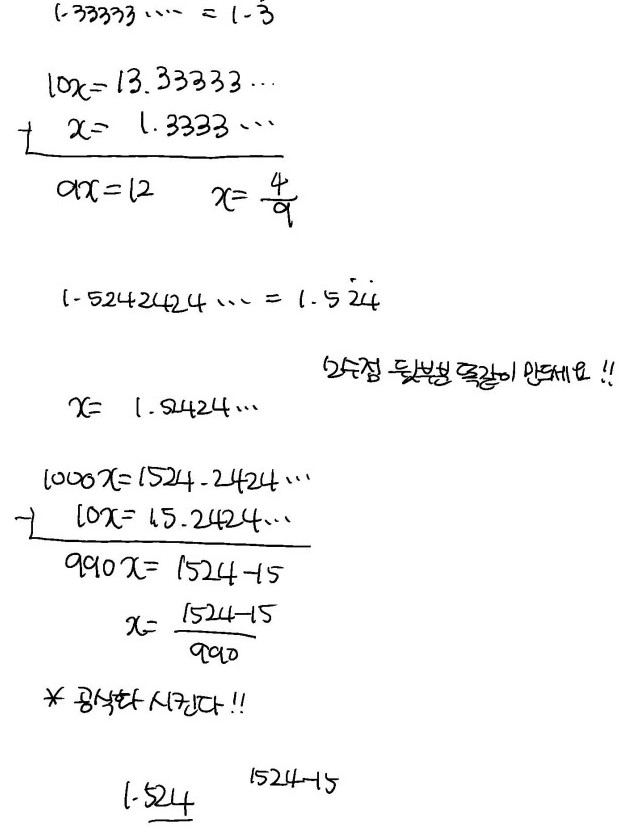 1.33333···· = 1.3̇
10x = 13.33333···
- x = 1.3333···
9x = 12 x = 4/9
1.5242424··· = 1.52̇4̇
소수점 뒷부분 똑같이 만드세요!!
x = 1.52424···
1000x = 1524.2424···
- 10x = 15.2424···
990x = 1524-15
x = 1524-15/990
* 공식화 시킨다!!
1.524 1524-15